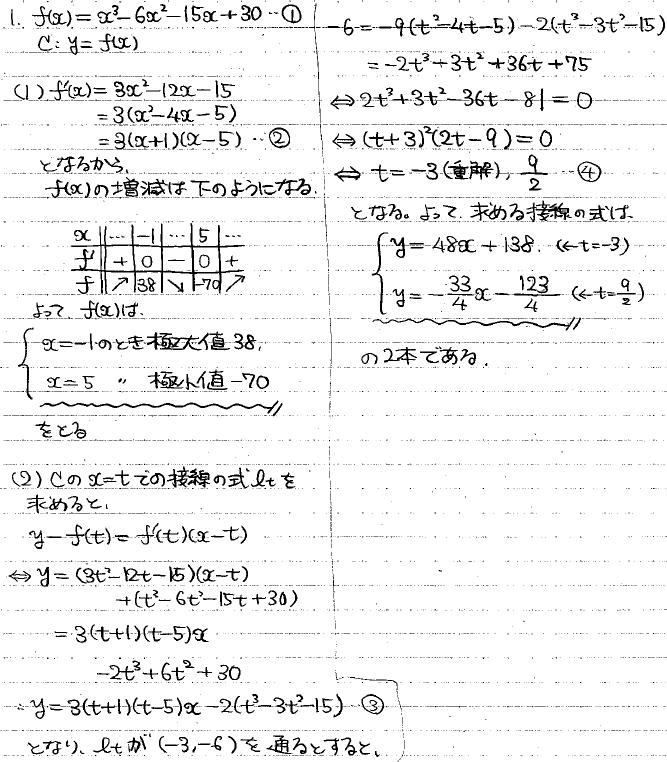 1. f(x)=x³-6x²-15x+30 …①
C: y=f(x)
(1) f'(x)=3x²-12x-15
=3(x²-4x-5)
=3(x+1)(x-5) …②
となるから、
f(x)の増減は下のようになる.
x | … | -1 | … | 5 | …
f' | + | 0 | - | 0 | +
f | ↗ | 38 | ↘ | -70 | ↗
よって f(x)は.
x=-1のとき極大値 38,
x=5 〃 極小値-70
をとる
(2) Cのx=tでの接線の式ltを
求めると,
y-f(t)=f'(t)(x-t)
⇔ y=(3t²-12t-15)(x-t)
+(t³-6t²-15t+30)
=3(t+1)(t-5)x
-2t³+6t²+30
∴y=3(t+1)(t-5)x-2(t³-3t²-15) …③
となり、ltが(-3,-6)を通るとすると、
-6=-9(t²-4t-5)-2(t³-3t²-15)
=-2t³+3t²+36t+75
⇔ 2t³+3t²-36t-81=0
⇔ (t+3)²(2t-9)=0
⇔ t=-3(重解), 9/2 …④
となる。よって 求める接線の式は
y=48x+138. (←t=-3)
y=-33/4x-123/4 (←t=9/2)
の2本である.